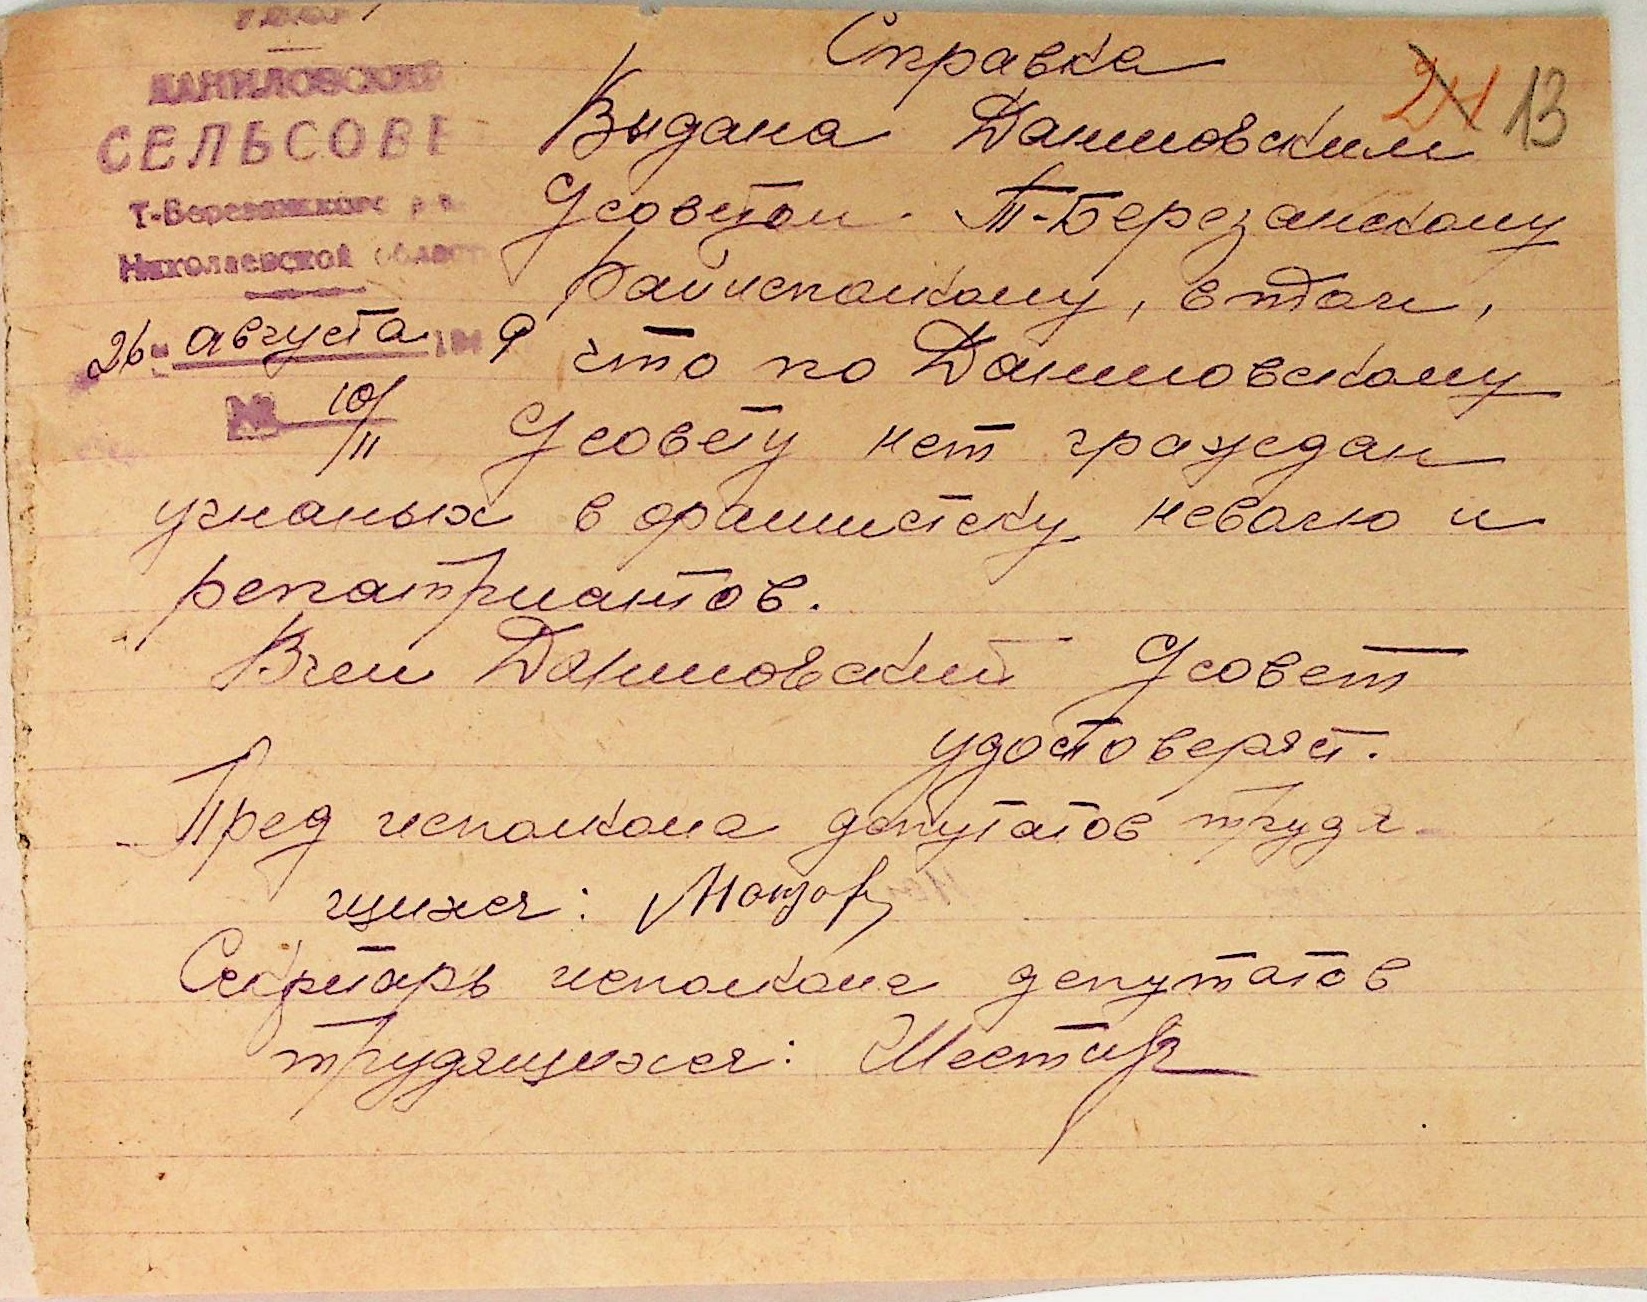 Справка
24 13
ДАНИЛОВСКИЙ
СЕЛЬСОВЕТ
Т-Березанского р-на
Николаевской област
26 августа 194 9
№ 10/11
Выдана Даниловским
Усоветом. Т-Березанскому
райисполкому, в том,
что по Даниловскому
Усовету нет граждан
угнаных в фашистску неволю и
репатриантов.
Вчем Даниловский Усовет
удостоверяет.
Пред исполкома депутатов трудя-
щихся:
Секртарь исполкома депутатов
трудящихся: